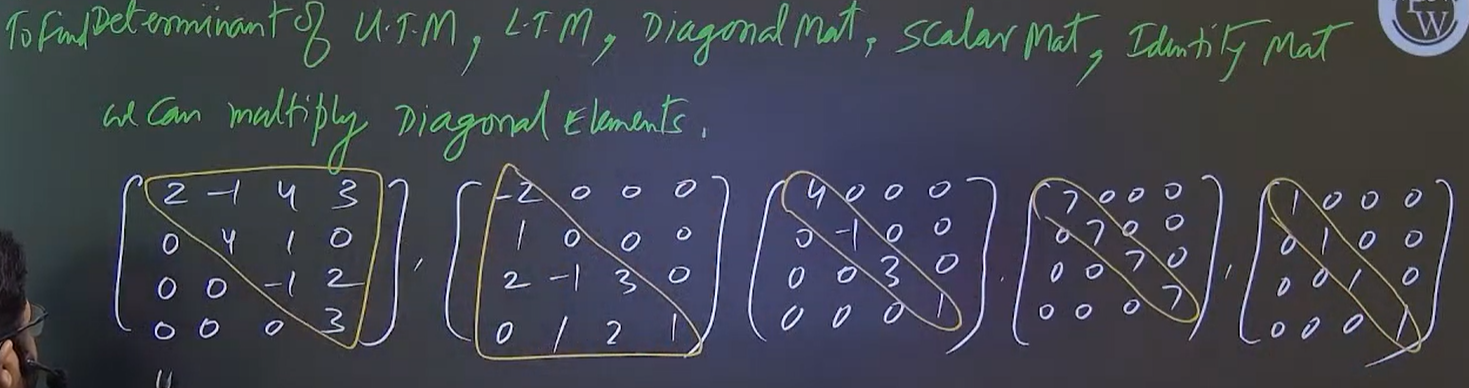 To Find Determinant of U.T.M, L.T.M, Diagonal Mat, Scalar Mat, Identity Mat
we can multiply Diagonal Elements.
[2 -1 4 3], [-2 0 0 0], [4 0 0 0], [7 0 0 0], [1 0 0 0]
0 4 1 0 1 0 0 0 0 -1 0 0 0 7 0 0 0 1 0 0
0 0 -1 2 2 -1 3 0 0 0 3 0 0 0 7 0 0 0 1 0
0 0 0 3 0 1 2 1 0 0 0 1 0 0 0 7 0 0 0 1
W